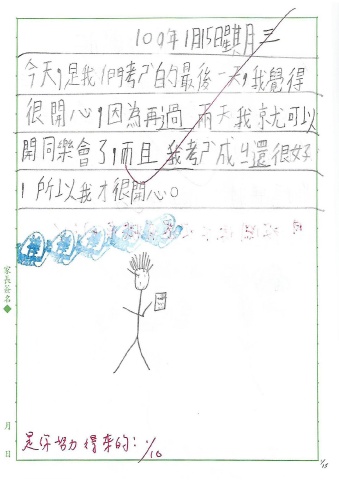 109年1月15日星其月三
今天,是我們考ㄕˋ的最後一天,我覺得
很開心,因為再過 兩天我就尤可以
開同樂會了,而且 我考ㄕˋ成ㄐ還很好
,所以我才很開心。
家長簽名◆
月
日
是你努力得來的:
1/15